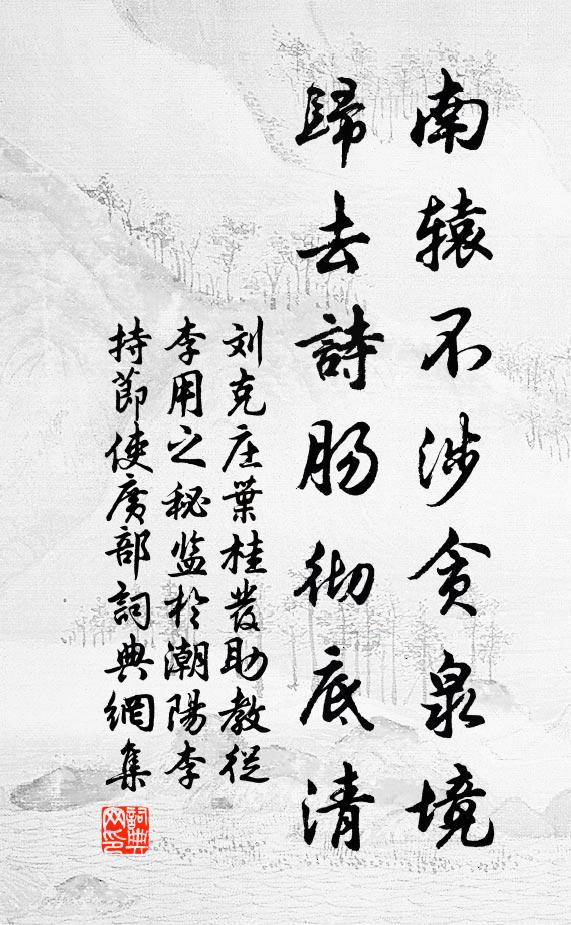 南辕不涉贪泉境
歸去詩肠彻底清
刘克庄葉桂發助教從
李用之秘监於潮陽李
持節使廣部詞典網集
詞典
网印